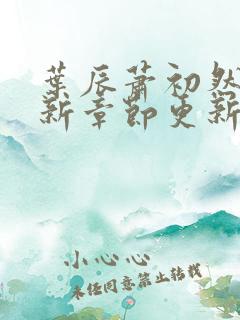 葉辰蕭初然
新章節更新
小心心
未经同意禁止转载